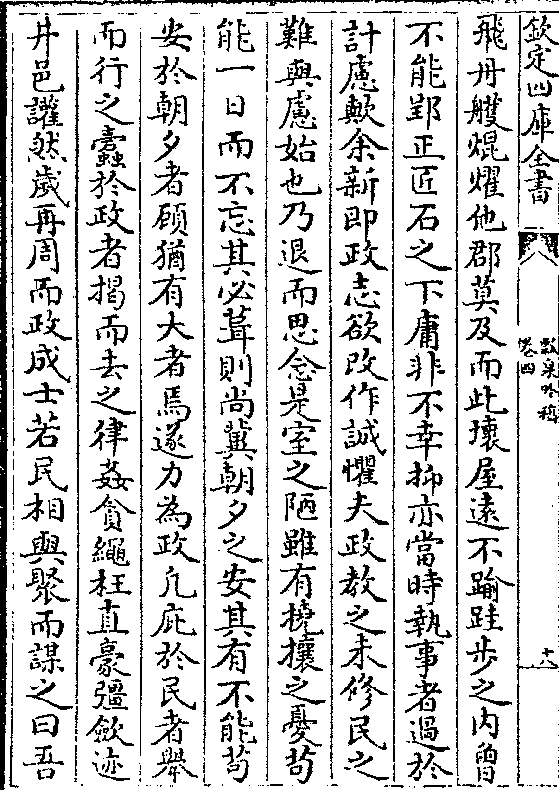 欽定四庫全書
卷四
十八
飛丹艧焜燿他郡莫及而此壞屋逺不踰跬步之内曽
不能郢正匠石之下庸非不幸抑亦當時執事者過於
計慮歟余新即政志欲改作誠懼夫政教之未修民之
難與慮始也乃退而思念是室之陋雖有橈攘之憂茍
能一日而不忘其必葺則尚冀朝夕之安其有不能茍
安於朝夕者顧猶有大者焉遂力為政凡庇於民者舉
而行之蠧於政者掲而去之律姦貪繩枉直豪彊斂迹
井邑讙然嵗再周而政成士若民相與聚而謀之曰吾